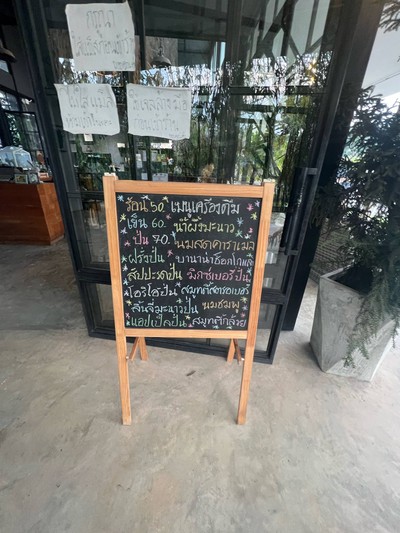 กรุณา
ใส่แมส
เจลล้างมือ
ร้อน.50. เมนูเครื่องดื่ม
เย็น 60. น้ำผึ้งมะนาว
ปั่น 70. นมสดคาราเมล
ฝรั่งปั่น บานาน่าช็อกโกแลต
สัปปะรดปั่น มิกซ์เบอร์รี่ปั่น
โอริโอ้ปั่น สมูทตี้สตอเบอรี่
ลิ้นจี่มะนาวปั่น นมชมพู
แอปเปิ้ลปั่น สมูทตี้กล้วย